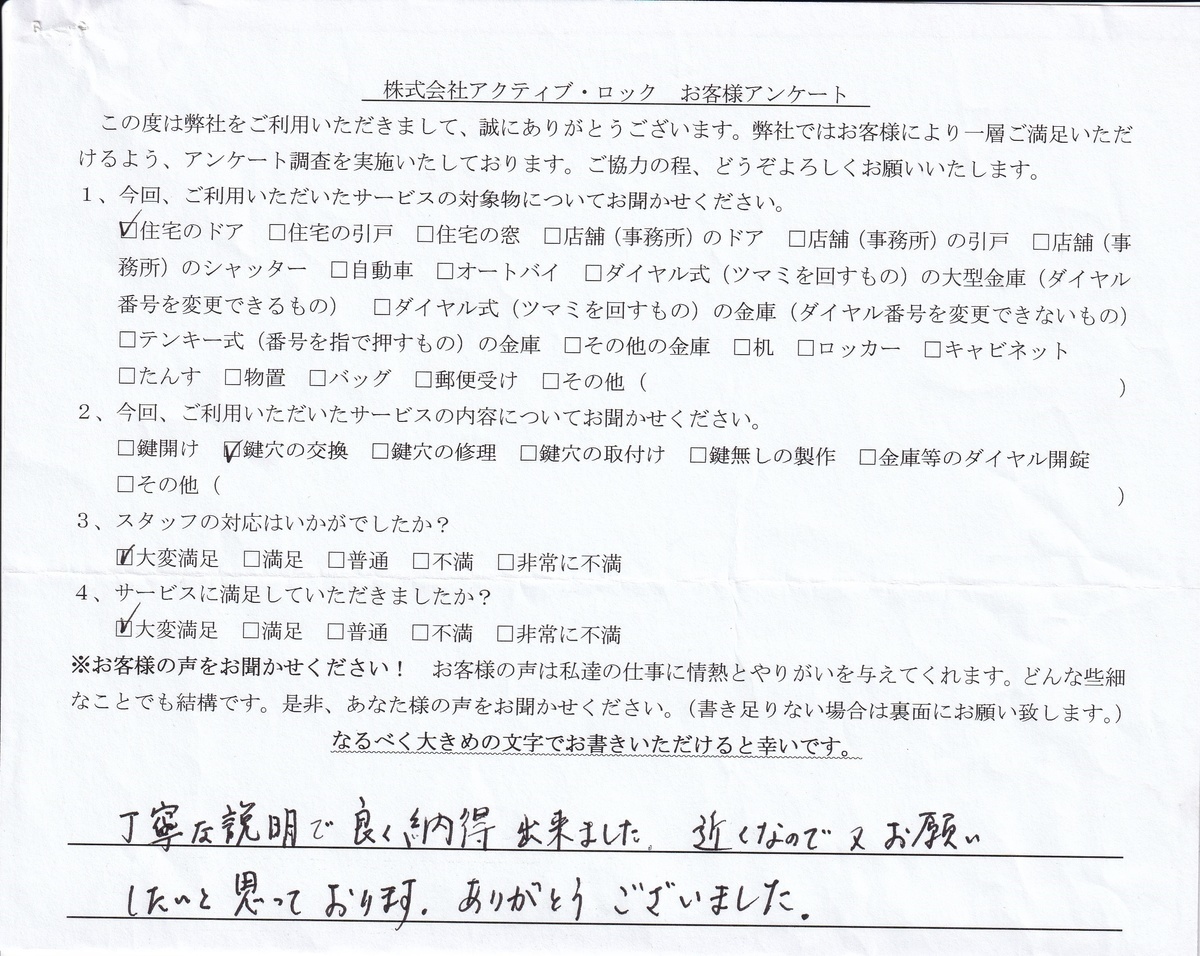 株式会社アクティブ・ロック　お客様アンケート
この度は弊社をご利用いただきまして、誠にありがとうございます。弊社ではお客様により一層ご満足いただ
けるよう、アンケート調査を実施いたしております。ご協力の程、どうぞよろしくお願いいたします。
１、今回、ご利用いただいたサービスの対象物についてお聞かせください。
☑住宅のドア　□住宅の引戸　□住宅の窓　□店舗（事務所）のドア　□店舗（事務所）の引戸　□店舗（事
務所）のシャッター　□自動車　□オートバイ　□ダイヤル式（ツマミを回すもの）の大型金庫（ダイヤル
番号を変更できるもの）　□ダイヤル式（ツマミを回すもの）の金庫（ダイヤル番号を変更できないもの）
□テンキー式（番号を指で押すもの）の金庫　□その他の金庫　□机　□ロッカー　□キャビネット
□たんす　□物置　□バッグ　□郵便受け　□その他（　　　　　　　　　　）
２、今回、ご利用いただいたサービスの内容についてお聞かせください。
□鍵開け　☑鍵穴の交換　□鍵穴の修理　□鍵穴の取付け　□鍵無しの製作　□金庫等のダイヤル開錠
□その他（　　　　　　　　　　）
３、スタッフの対応はいかがでしたか？
☑大変満足　□満足　□普通　□不満　□非常に不満
４、サービスに満足していただきましたか？
☑大変満足　□満足　□普通　□不満　□非常に不満
※お客様の声をお聞かせください！　お客様の声は私達の仕事に情熱とやりがいを与えてくれます。どんな些細
なことでも結構です。是非、あなた様の声をお聞かせください。（書き足りない場合は裏面にお願い致します。）
なるべく大きめの文字でお書きいただけると幸いです。
丁寧な説明で良く納得出来ました。近くなので又お願い
したいと思っております。ありがとうございました。